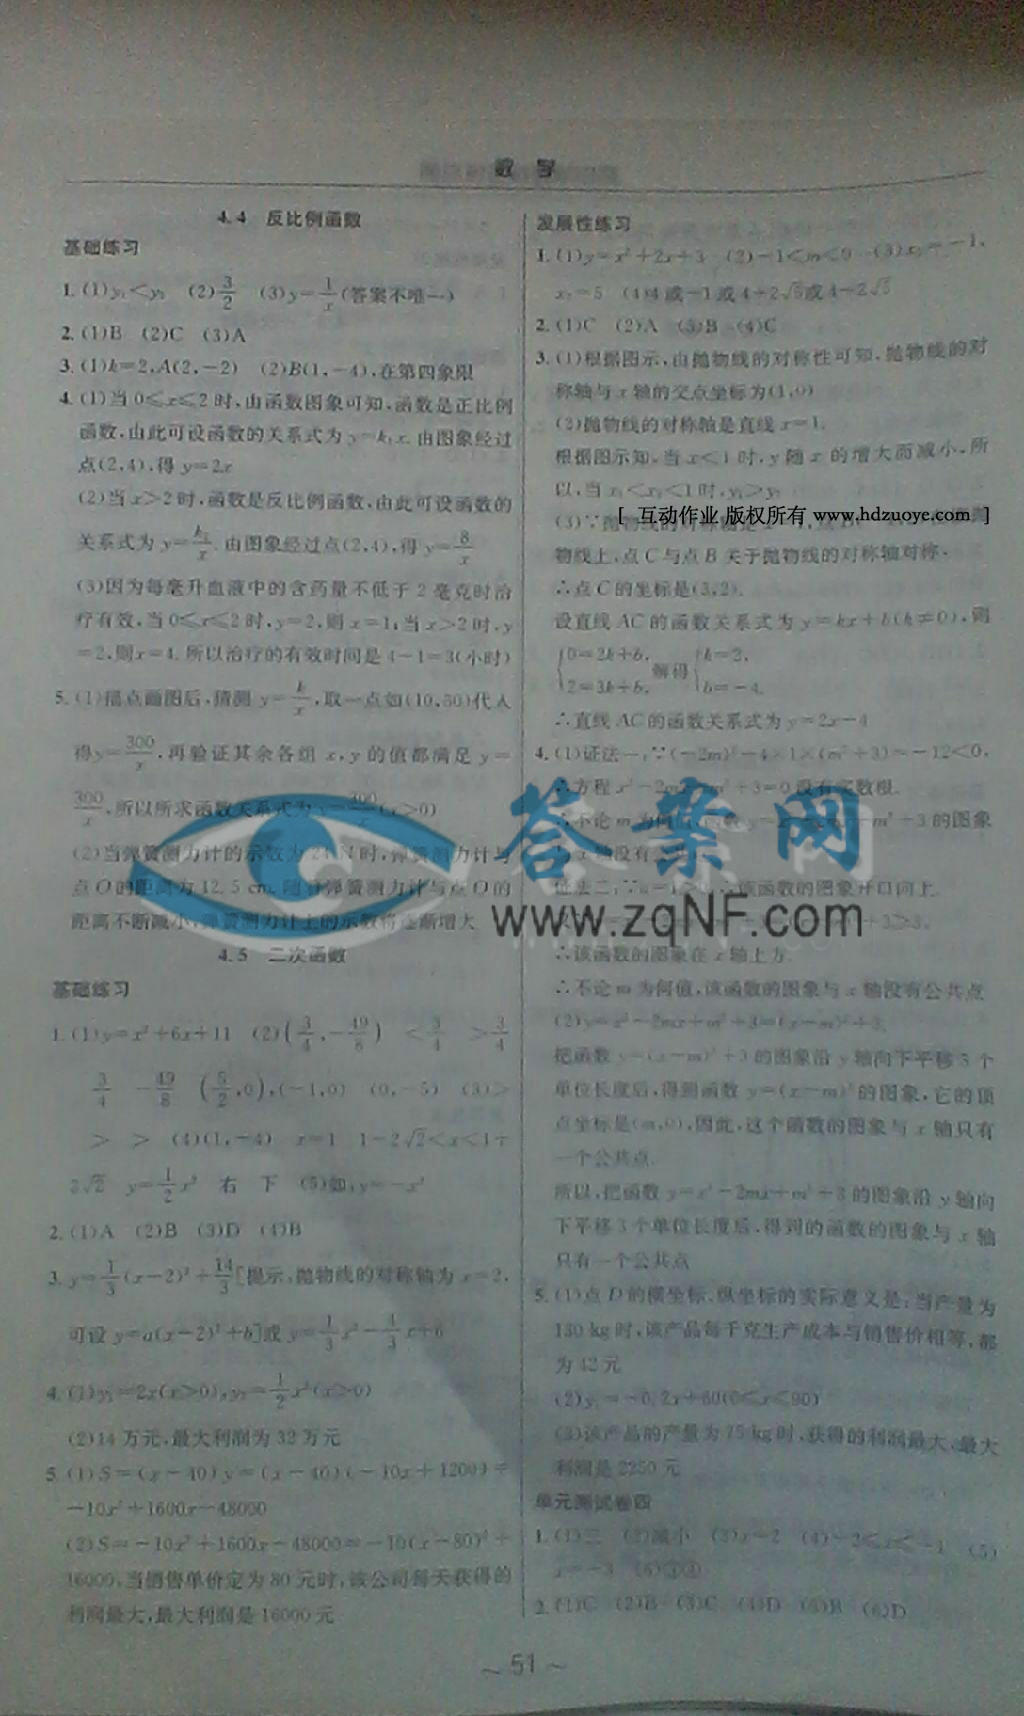 数 学
4.4 反比例函数
基础练习
1. (1)y₁<y₂ (2)3/2 (3)y=1/x(答案不唯一)
2. (1)B (2)C (3)A
3. (1)k=2,A(2,-2) (2)B(1,-4),在第四象限
4. (1)当 0≤x≤2 时,由函数图象可知,函数是正比例
函数,由此可设函数的关系式为 y=k₁x. 由图象经过
点(2,4),得 y=2x
(2)当 x>2 时,函数是反比例函数,由此可设函数的
关系式为 y=k₂/x. 由图象经过点(2,4),得 y=8/x
(3)因为每毫升血液中的含药量不低于 2 毫克时治
疗有效,当 0≤x≤2 时,y=2,则 x=1;当 x>2 时,y
=2,则x=4. 所以治疗的有效时间是 4-1=3(小时)
5. (1)描点画图后,猜测 y=k/x,取一点如(10,30)代入
得y=300/x,再验证其余各组 x,y 的值都满足 y=
300/x,所以所求函数关系式为 y=300/x(x>0)
(2)当弹簧测力计的示数为 24 N 时,弹簧测力计与
点 O 的距离为 12.5 cm,随着弹簧测力计与点 O 的
距离不断减小,弹簧测力计上的示数将逐渐增大
4.5 二次函数
基础练习
1. (1)y=x²+6x+11 (2)(3/4,-49/8) <3/4 >3/4
3/4 -49/8 (5/2,0),(-1,0) (0,-5) (3)>
> > (4)(1,-4) x=1 1-2√2<x<1+
2√2 y=1/2x² 右 下 (5)如:y=-x²
2. (1)A (2)B (3)D (4)B
3. y=1/3(x-2)²+14/3[提示,抛物线的对称轴为 x=2,
可设 y=a(x-2)²+b]或 y=1/3x²-4/3x+6
4. (1)y₁=2x(x>0),y₂=1/2x²(x>0)
(2)14 万元,最大利润为 32 万元
5. (1)S=(x-40)y=(x-40)(-10x+1200)=
-10x²+1600x-48000
(2)S=-10x²+1600x-48000=-10(x-80)²+
16000,当销售单价定为 80 元时,该公司每天获得的
利润最大,最大利润是 16000 元
发展性练习
1. (1)y=x²+2x+3 (2)-1<m<0 (3)x₁=-1,
x₂=5 (4)4 或-1 或 4+2√5 或 4-2√5
2. (1)C (2)A (3)B (4)C
3. (1)根据图示,由抛物线的对称性可知,抛物线的对
称轴与 x 轴的交点坐标为(1,0)
(2)抛物线的对称轴是直线 x=1.
根据图示知,当 x<1 时,y 随 x 的增大而减小,所
以,当 x₁<x₂<1 时,y₁>y₂
[ 互动作业 版权所有 www.hdzuoye.com ]
物线上,点 C 与点 B 关于抛物线的对称轴对称.
∴点 C 的坐标是(3,2).
设直线 AC 的函数关系式为 y=kx+b(k≠0),则
{0=2k+b, 2=3k+b. 解得 {k=2, b=-4.
∴直线 AC 的函数关系式为 y=2x-4
4. (1)证法一:∵(-2m)²-4×1×(m²+3)=-12<0,
∴方程 x²-2mx+m²+3=0 没有实数根.
∴不论 m 为何值,函数 y=x²-2mx+m²+3 的图象
与 x 轴没有公共点
证法二:∵a=1>0,∴该函数的图象开口向上.
∴该函数的图象在 x 轴上方.
∴不论 m 为何值,该函数的图象与 x 轴没有公共点
(2)y=x²-2mx+m²+3=(x-m)²+3,
把函数 y=(x-m)²+3 的图象沿 y 轴向下平移 3 个
单位长度后,得到函数 y=(x-m)² 的图象,它的顶
点坐标是(m,0),因此,这个函数的图象与 x 轴只有
一个公共点.
所以,把函数 y=x²-2mx+m²+3 的图象沿 y 轴向
下平移 3 个单位长度后,得到的函数的图象与 x 轴
只有一个公共点
5. (1)点 D 的横坐标、纵坐标的实际意义是:当产量为
130 kg 时,该产品每千克生产成本与销售价相等,都
为 42 元
(2)y₁=-0.2x+60(0≤x≤90)
(3)该产品的产量为 75 kg 时,获得的利润最大,最大
利润是 2250 元
单元测试卷四
1. (1)三 (2)减小 (3)x=2 (4)-2<x<-1 (5)
x=-3 (6)③④
2. (1)C (2)B (3)C (4)D (5)B (6)D
答案网
www.zqNF.com
~ 51 ~